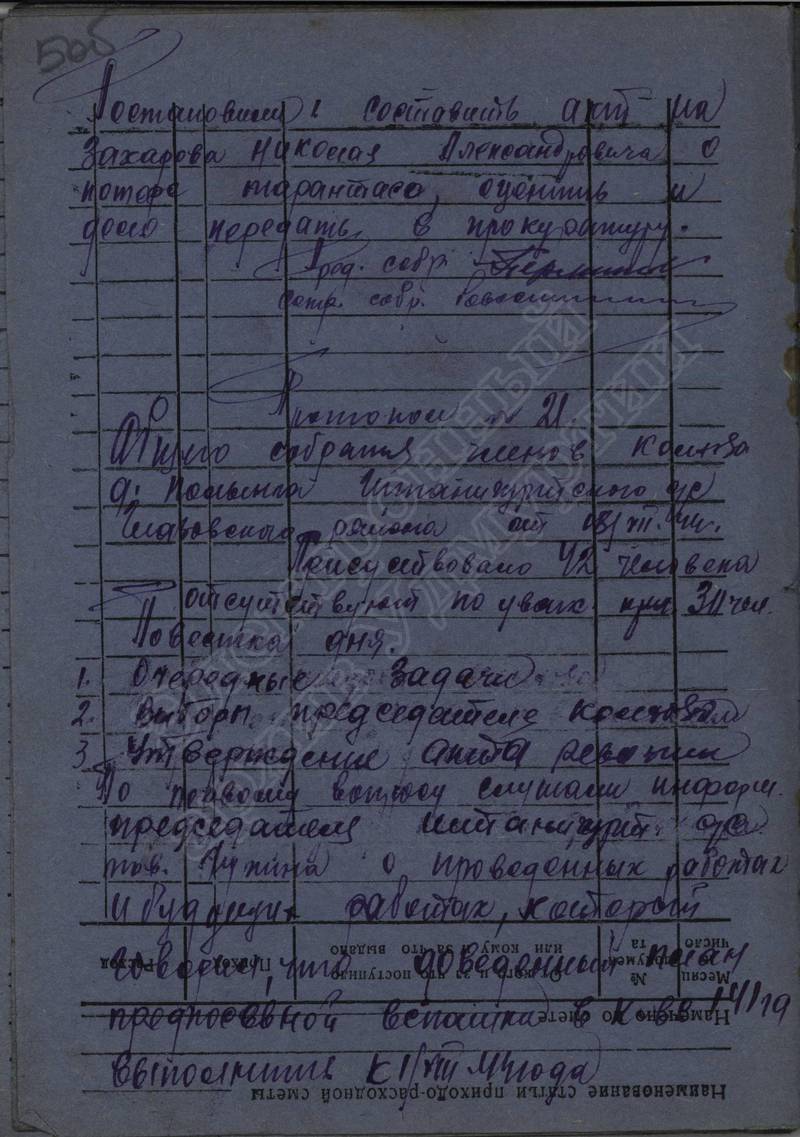 505
Постановили: составить акт на
Захарова Николая Александровича о
потере тарантаса, оценить и
дело передать в прокуратуру.
Пред. собр.
Секр. собр.
Протокол № 21.
Общего собрания членов колхоза
д. Штанигуртского с/с
Глазовского района от
Присутствовало 42 человека
отсутствуют по уваж. при. 30 чел.
Повестка дня.
1. Очередные задачи
2. Выборы председателя колхоза
3 Утверждение акта ревизии
По первому вопросу слушали информ.
председателя Штанигурт. с/с
тов. о проведенных работах
и будущих работах, который
говорил, что доведенный план
предпосевной вспашки в к-ве
выполнить к
Наименование статьи приходо-расходной сметы
Намечено по смете
Месяц и число
№ документа
От кого и за что поступило или кому и за что выдано
Приход
Расход